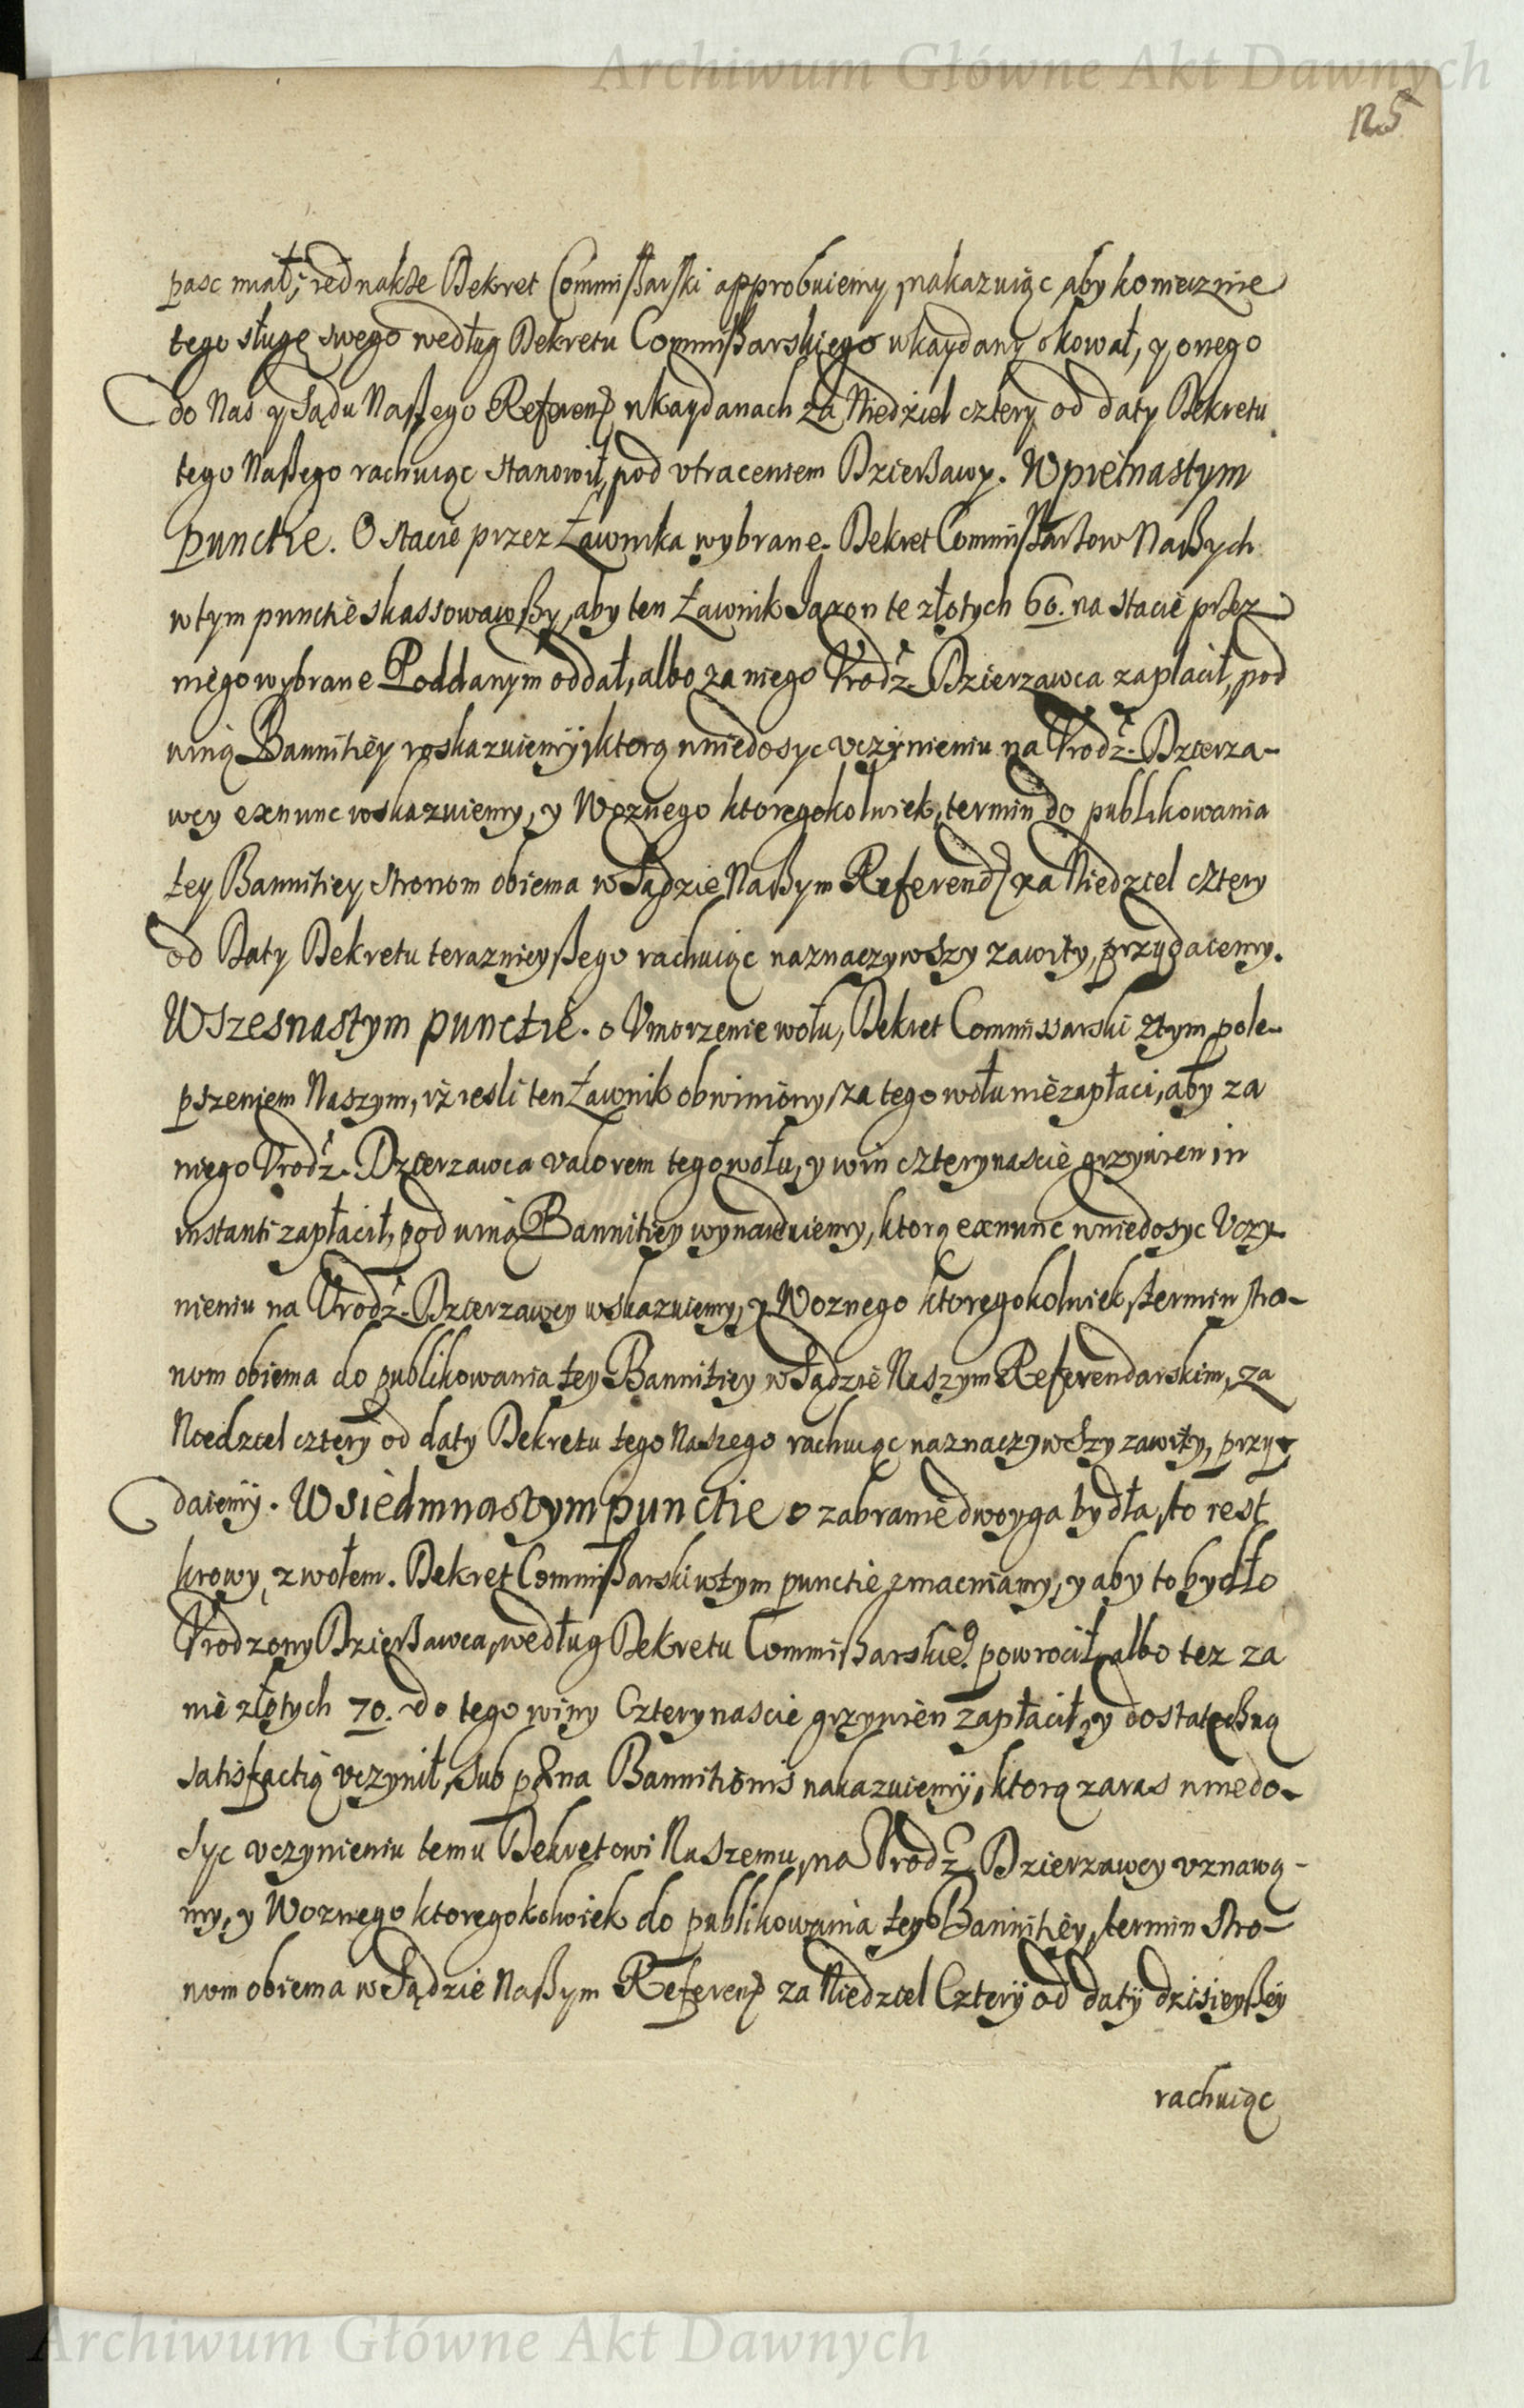 Archiwum Główne Akt Dawnych
125
pasc miał; iednakże Dekret Commißarski approbuiemy, nakazuiąc aby koniecznie
tego sługę swego według Dekretu Commißarskiego wkaydany okował, y onego
do Nas y Sądu Naßego Referen wkaydanach za Niedziel cztery od daty Dekretu
tego Naßego rachuiąc stanowił, pod vtraceniem Dzierßawy. W piętnastym
punctie. O stacie przez Ławnika wybrane. Dekret Commißarzow Naßych
wtym punctie skassowawßy, aby ten Ławnik Jaxon te złotych 60. na stacie przez
niego wybrane Poddanym oddał, albo za niego Vrodz. Dzierzawca zapłacił, pod
winą Bannitiey roskazuiemy, ktorą wniedosyc vczynieniu na Vrodz. Dzierza-
wcy exnunc wskazuiemy, y Woznego ktoregokolwiek, termin do publikowania
tey Bannitiey stronom obiema w Sądzie Naßym Referend za Niedziel cztery
od Daty Dekretu teraznieyßego rachuiąc naznaczywszy zawity, przydaiemy.
W szesnastym punctie. o Vmorzenie wołu, Dekret Commissarski ztym pole-
pszeniem Naszym, iż iesli ten Ławnik obwiniony, za tego wołu nie zapłaci, aby za
niego Vrodz. Dzierzawca valorem tego wołu, y win czterynascie grzywien in
instanti zapłacił, pod winą Bannitiey wynayduiemy, ktorą exnunc wniedosyc Vczy-
nieniu na Vrodz. Dzierzawcy wskazuiemy, y Woznego ktoregokolwiek, termin stro-
nom obiema do publikowania tey Bannitiey w Sądzie Naszym Referendarskim, za
Niedziel cztery od daty Dekretu tego Naszego rachuiąc naznaczywszy zawity, przy-
daiemy. W siedmnastym punctie o zabranie dwoyga bydła, to iest
krowy, z wołem. Dekret Commißarski wtym punctie zmacniamy, y aby to bydło
Vrodzony Dzierßawca, według Dekretu Commißarskieo powrocił, albo tez za
nie złotych 70. do tego winy Czterynascie grzywien zapłacił, y dostateczną
satisfactią vczynił, sub pœna Bannitionis nakazuiemy, ktorą zaras wniedo-
syc vczynieniu temu Dekretowi Naszemu, na Vrodz. Dzierzawcy vznawa-
my, y Woznego ktoregokolwiek do publikowania tey Bannitiey, termin stro-
nom obiema w Sądzie Naßym Referen za Niedziel Cztery od daty dzisieyßey
rachuiąc
Archiwum Główne Akt Dawnych